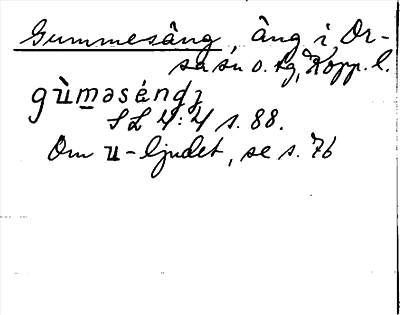 Gummesäng, äng i Or-
sa sn o. tg, Kopp. l.
gùm̲əséŋgɜ
SL 4:4 s. 88.
Om u-ljudet, se s. 76